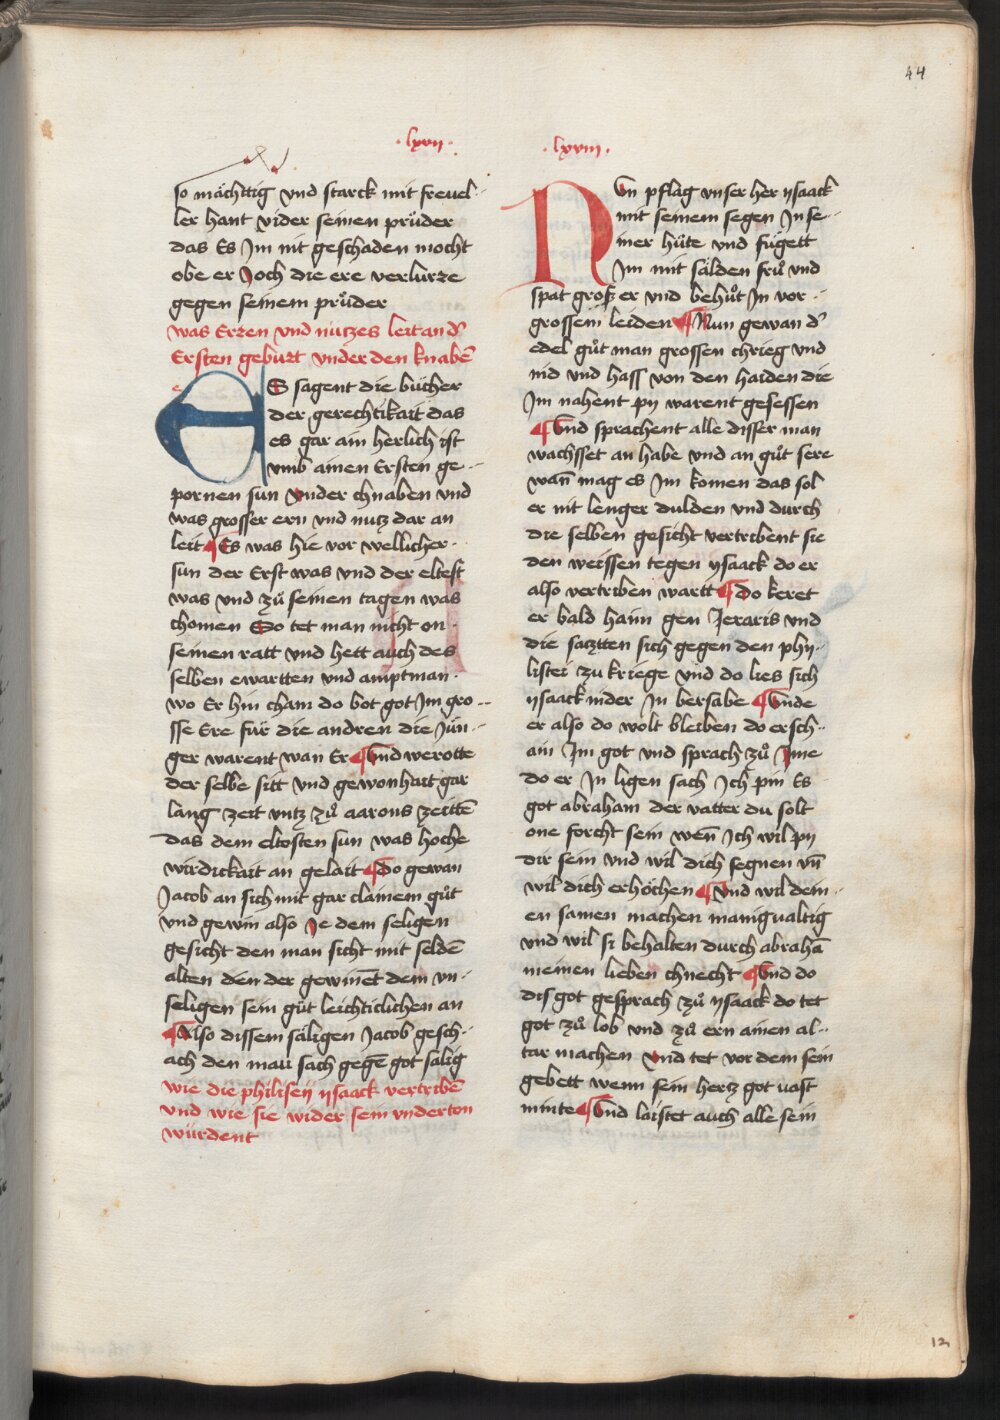 44
·lxvii·
so mächttig vnd starck mit freuel-
ler hant vider seinen průder
das Es Im nit geschaden mocht
obe er Joch die ere verlurze
gegen seinem průder
was Erzen vnd nutzes leit an d'
Ersten geburt vnder den knabē
ES sagent die bücher
der gerechtikait das
es gar ain herlich ist
vmb ainen Ersten ge-
pornen sun vnder chnaben vnd
was grosser ern vnd nutz dar an
leit ¶ Es was hie vor wellicher
sun der Erst was vnd der eltest
was vnd zů seinen tagen was
chomen So tet man nicht on
seinen ratt vnd hett auch des
selben ewartten vnd amptman
wo Er hin cham do bot got Im gro-
sse Ere für die andren die Jün-
ger warent wan Er ¶ Vnd werotte
der selbe sitt vnd gewonhait gar
lang zeit vntz zů aarons zeittē
das dem eltosten sun was hoche
wirdickait an gelait ¶ Do gewan
Jacob an sich mit gar clainem gůt
vnd gewin also Je dem seligen
gesicht den man sicht mit seldē
alten den der gewinēt dem vn-
seligen sein gůt leichticlichen an
¶ Also dissem säligen Jacob gesch-
ach den man sach gegē got sälig
wie die philiseÿ ysaack vertribē
vnd wie sie wider sein vnderton
würdent
·lxviii·
NVn pflag vnser her ysaack
mit seinem segen In se-
iner hůte vnd fügett
Im mit sälden frů vnd
spat groß er vnd behůt In vor
grossem leiden ¶ Nun gewan d'
edel gůt man grossen chrieg vnd
nid vnd hass von den haiden die
Im nahent pÿ warent gesessen
¶ Vnd sprachent alle disser man
wachsset an habe vnd an gůt sere
wan̄ mag es Im komen das sol
er nit lenger dulden vnd durch
die selben gesicht vertribent sie
den weissen tegen ysaack do er
also vertriben wartt ¶ Do keret
er bald haim gen Jeraris vnd
die satztten sich gegen den phÿ-
listei zu kriege vnd do lies sich
ysaack nider In bersabe ¶ Vnde
er also do wolt bleiben do ersch-
ain Im got vnd sprach zů Jme
do er In ligen sach Ich pin Es
got abraham der vatter du solt
one forcht sein wen̄ Ich wil pÿ
dir sein vnd wil dich segnen vn̄
wil dich erhöchen ¶ Vnd wil dein-
en samen machen manigualtig
vnd wil si behalten durch abrahā
meinen lieben chnecht ¶ Vnd do
dis got gesprach zů ysaack do tet
got zů lob vnd zů ern ainen al-
tar machen Vnd tet vor dem sein
gebett wenn sein hertz got vast
minte ¶ Vnd laistet auch alle sein
12